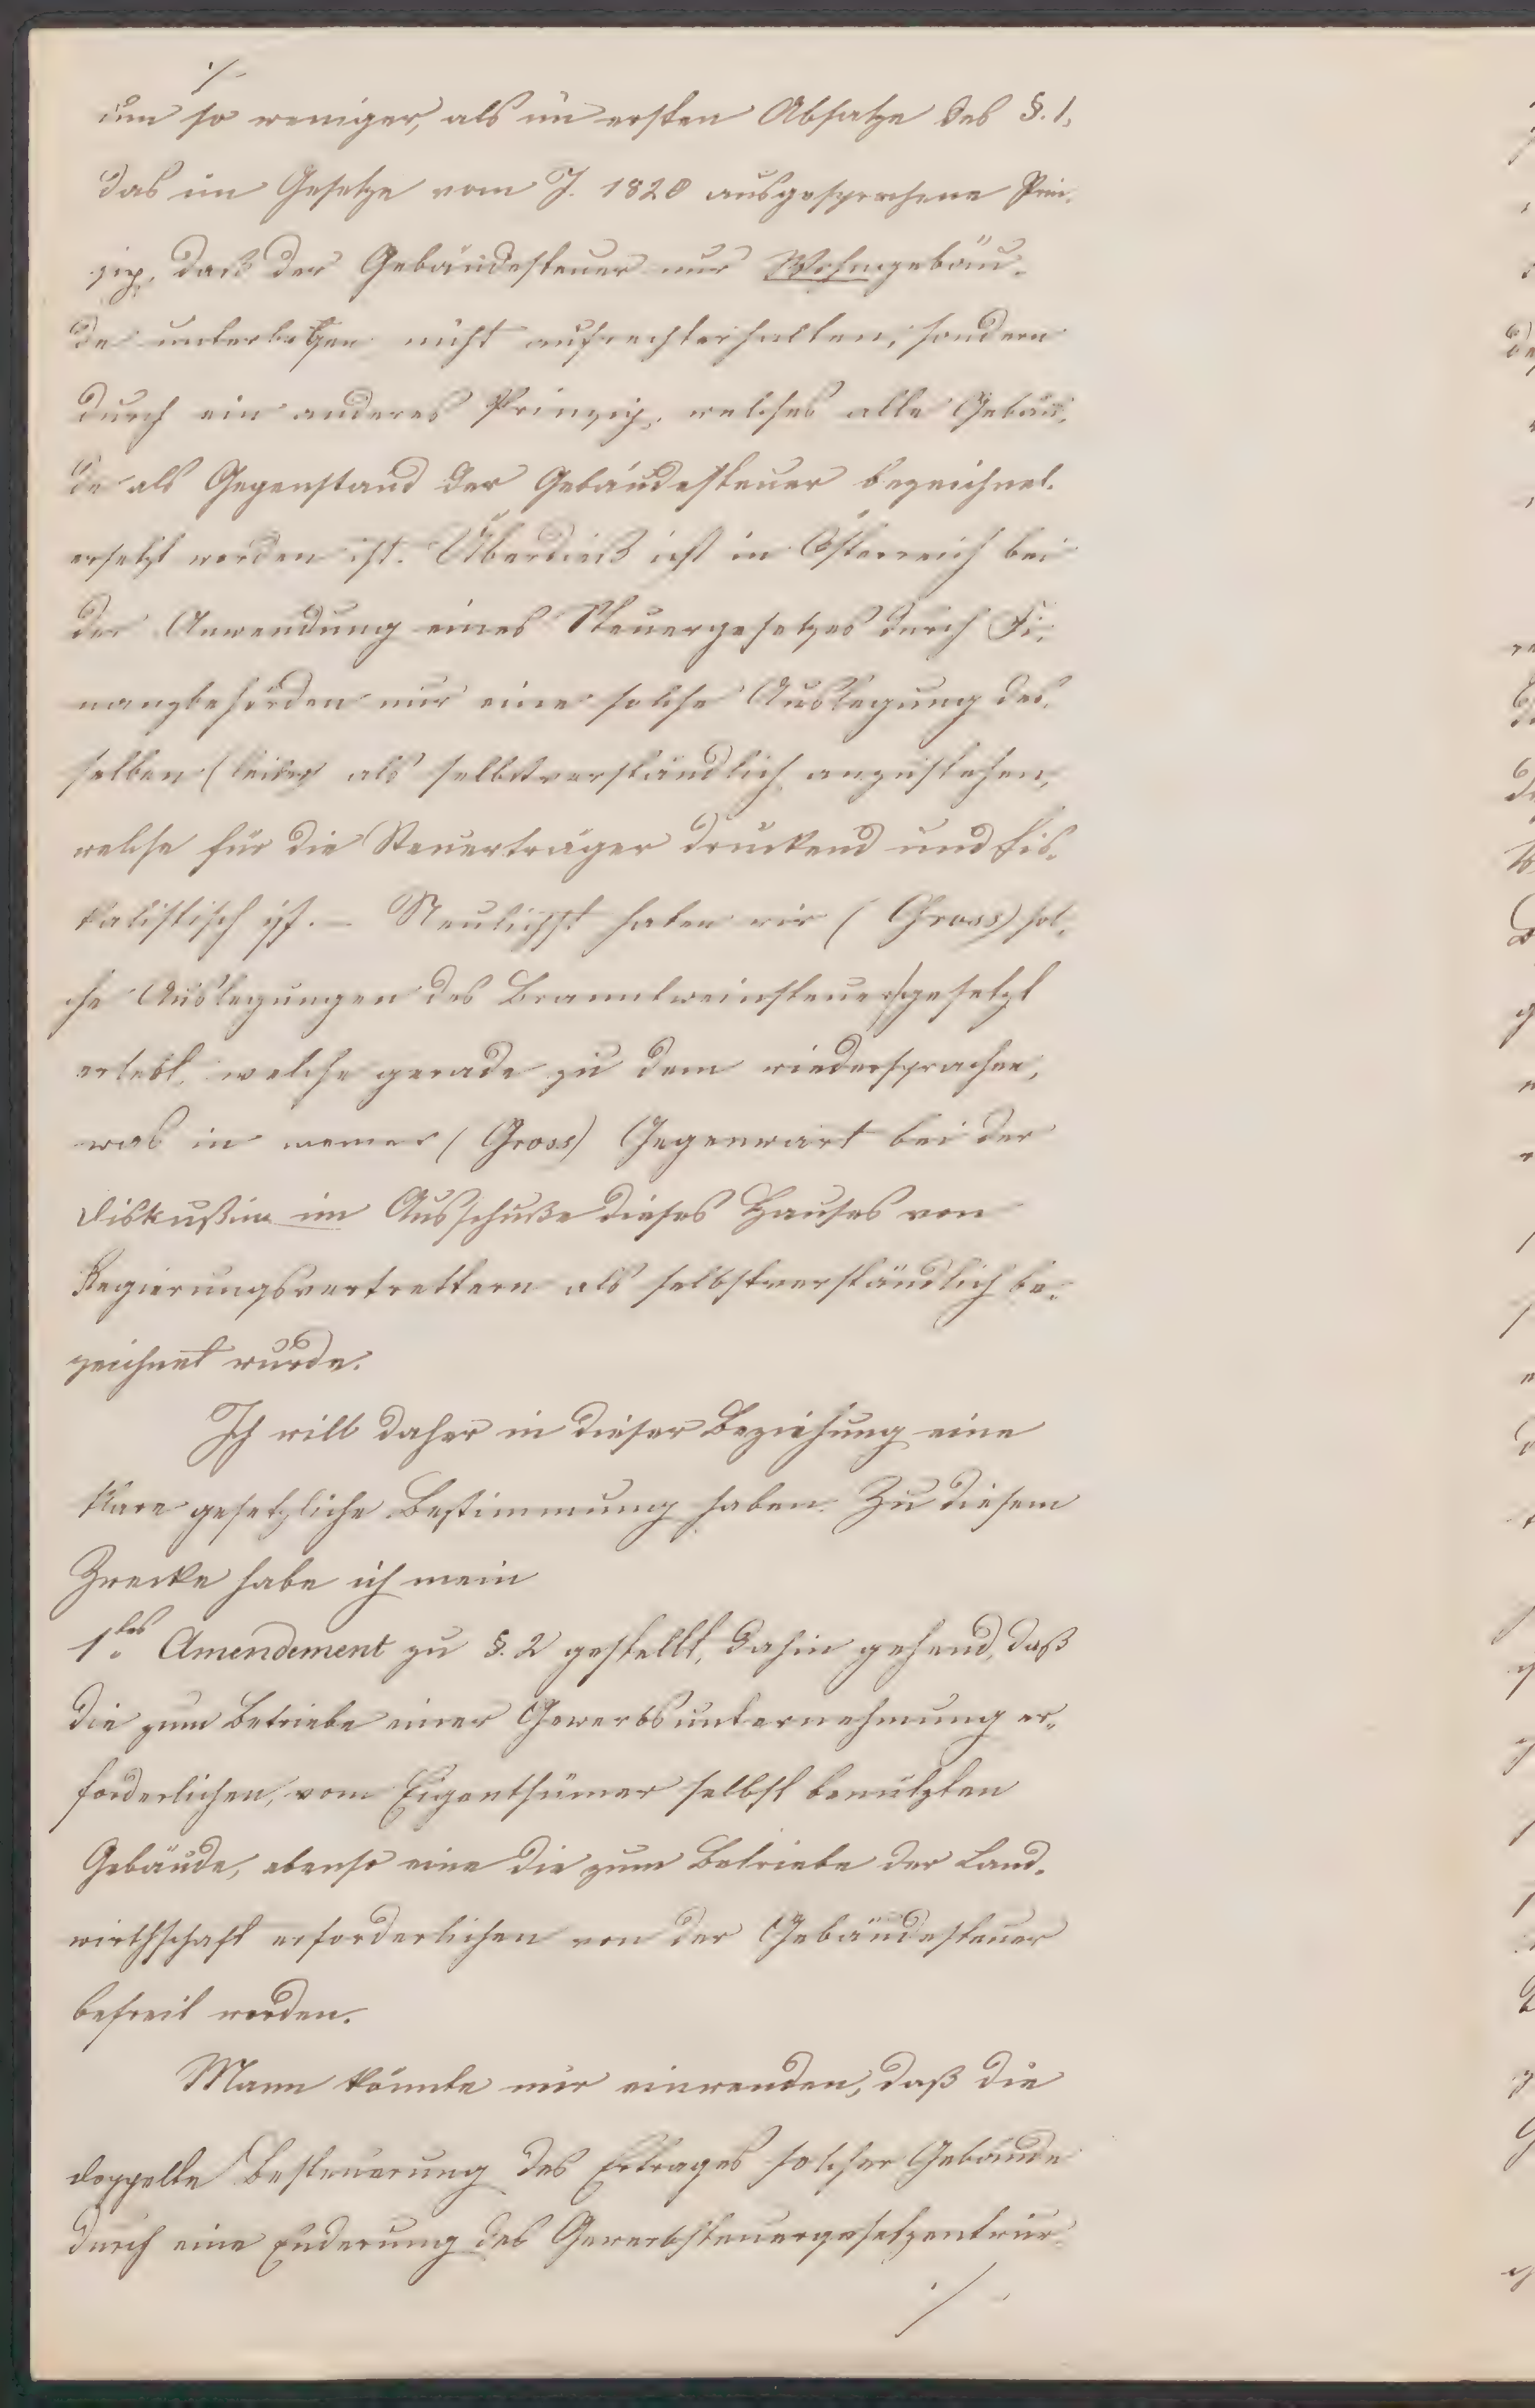 ./.
um so weniger, als im ersten Absatze des §. 1.
das im Gesetze vom J. 1820 ausgesprochene Prin-
zip, daß der Gebäudesteuer nur Wohngebäu-
de unterliegen nicht aufrechterhalten, sondern
durch ein anderes Prinzip, welches alle Gebäu-
de als Gegenstand der Gebäudesteuer bezeichnet
ersetzt worden ist. Überdieß ist in Österreich bei
der Anwendung eines Steuergesetzes durch Fi-
nanzbehörden nur eine solche Auslegung des-
selben (leider) als selbstverständlich anzusehen,
welche für die Steuerträger drückend und fis-
kalistisch ist. – Neulichst haben wir (Gross) sol-
che Auslegungen des Branntweinsteuergesetzt
erlebt, welche gerade zu dem wiedersprachen,
was in meiner (Gross) Gegenwart bei der
Diskußion im Ausschuße dieses Hauses von
Regierungsvertrettern als selbstverständlich be-
zeichnet wurde.
Ich will daher in dieser Beziehung eine
klare gesetzliche Bestimmung haben. Zu diesem
Zwecke habe ich mein
1.tes Amendement zu §. 2 gestellt, dahin gehend, daß
die zum Betriebe einer Gewerbsunternehmung er-
forderlichen, vom Eigenthümer selbst benützten
Gebäude, ebenso wie die zum Betriebe der Land-
wirthschaft erforderlichen von der Gebäudesteuer
befreit werden.
Mann könnte mir einwenden, daß die
doppelte Besteuerung des Ertrages solcher Gebäude
durch eine Enderung des Gewerbsteuergesetzentwur-
./.